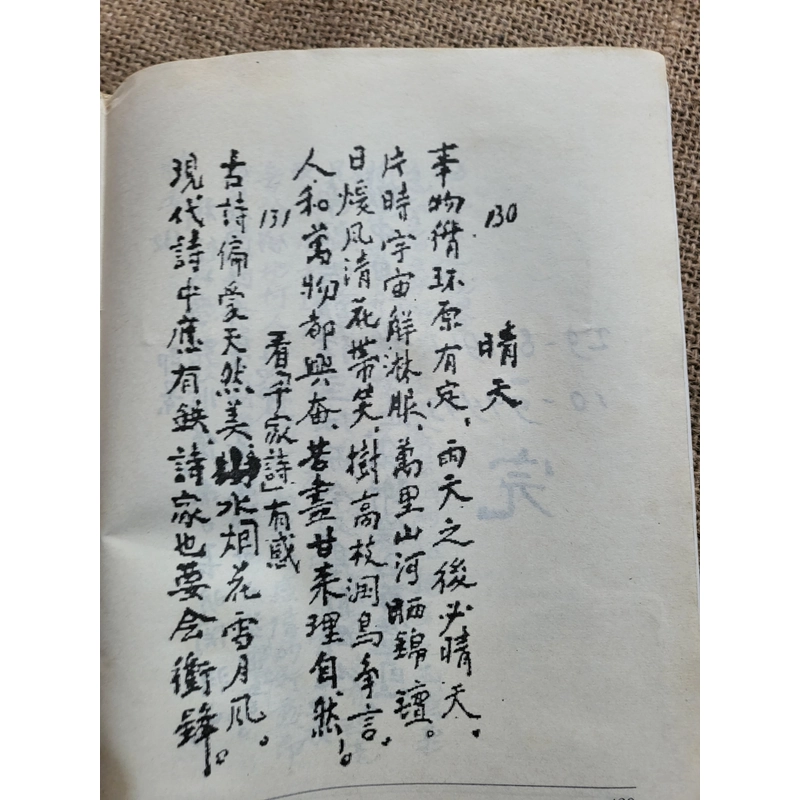 130
晴天
事物循环原有定、雨天之後必晴天。
片時宇宙解淋服、萬里山河晒錦氈。
日煖風清花帶笑、樹高枝潤鳥争言。
人和萬物都興奋、苦盡甘来理自然。
131
看「千家詩」有感
古詩偏愛天然美、山水烟花雪月風。
現代詩中應有鉄、詩家也要会衝鋒。